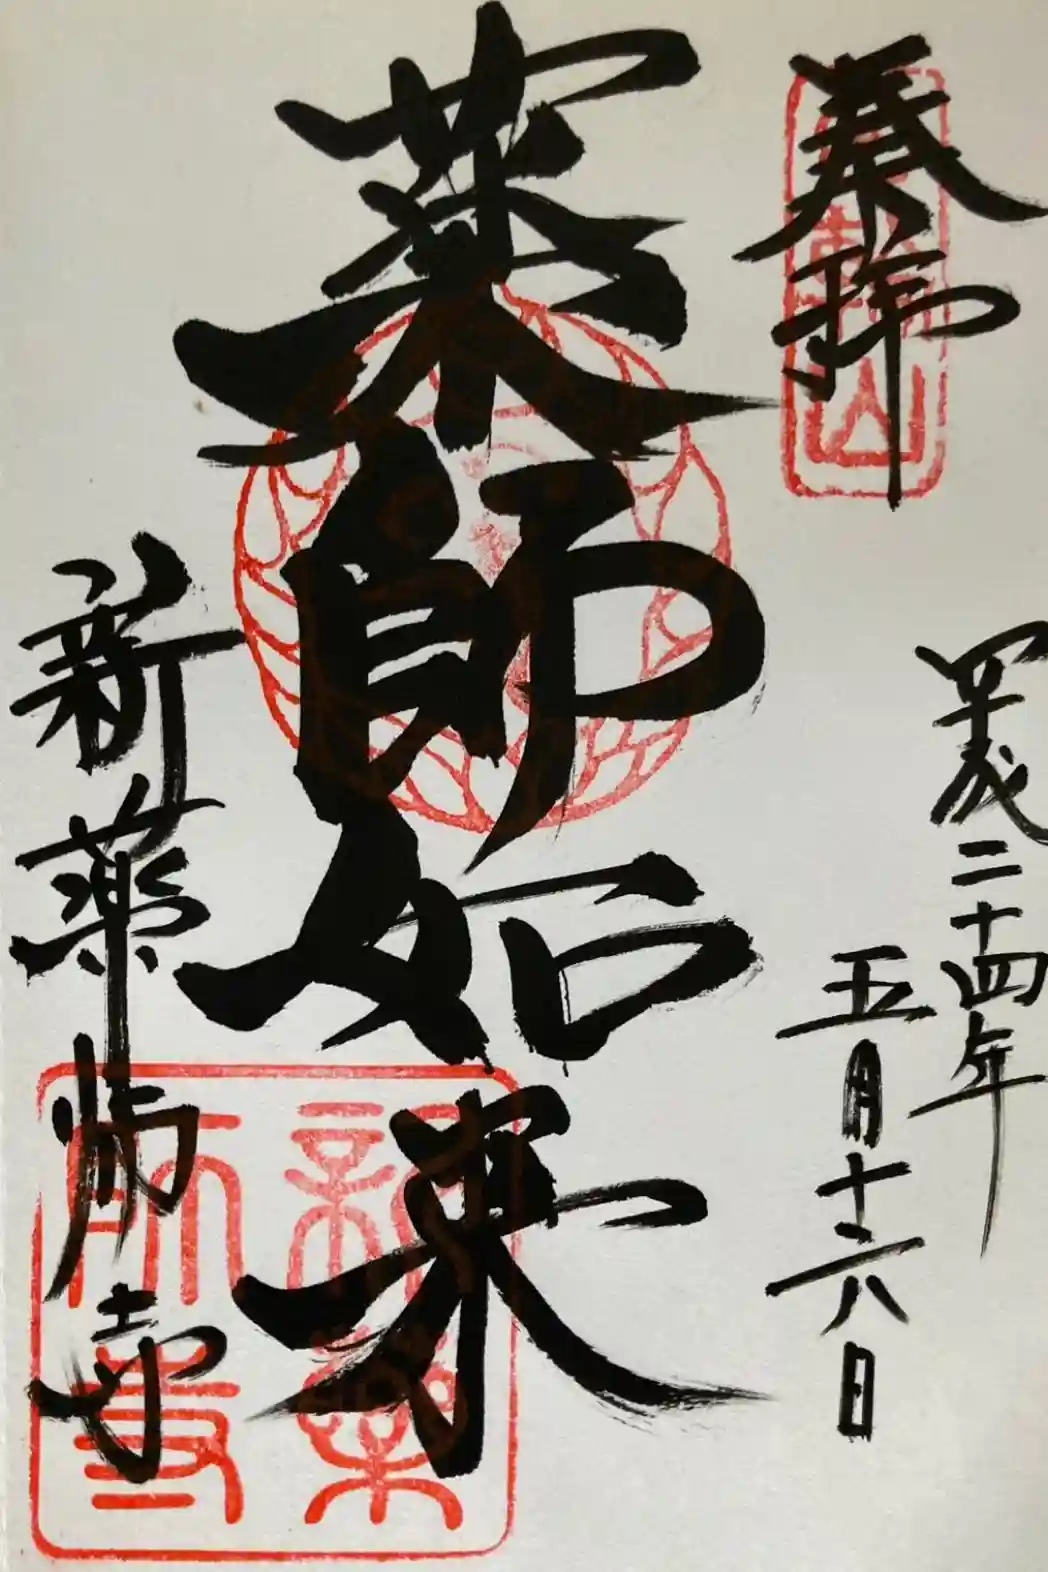 奉拝
平成二十四年
五月十六日
薬師如来
新薬師寺
新薬
師寺